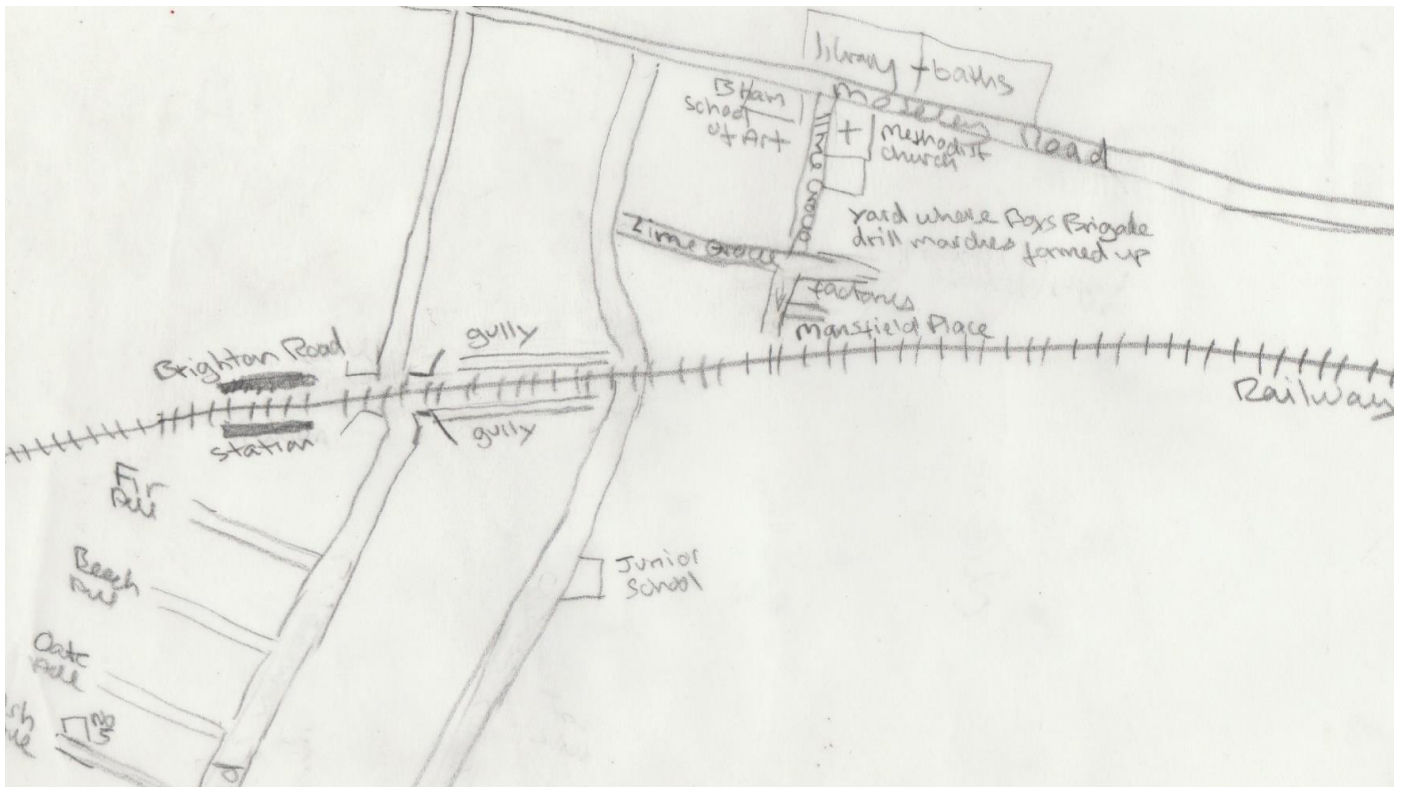 library + baths
Moseley Road
B'Ham
School
of Art
Methodist
church
Lime Grove
Yard where Boys Brigade
drill marches formed up
Lime Grove
factories
Mansfield Place
gully
Brighton Road
station
gully
Railway
Fir
Ave
Beech
Ave
Junior
School
Oak
Ave
No
5